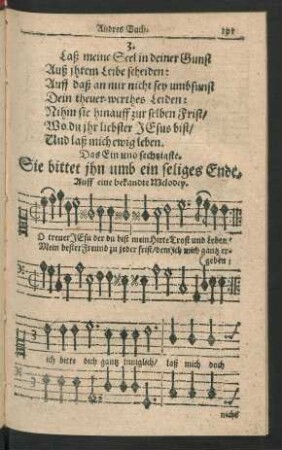 Andres Buch. 191
3.
Laß meine Seel in deiner Gunst
Auß jhrem Leibe scheiden:
Auff daß an mir nicht sey umbsunst
Dein theuer-werthes Leiden:
Nihm sie hinauff zur selben Frist/
Wo du jhr liebster JEsus bist/
Und laß mich ewig leben.
Das Ein und sechtzigste.
Sie bittet jhn umb ein seliges Ende.
Auff eine bekandte Melodey.
O treuer JEsu der du bist mein Hirte Trost und Leben/
Mein bester Freund zu jeder Frist/ dem ich mich gantz er-
geben:
ich bitte dich gantz inniglich/ laß mich doch
nicht